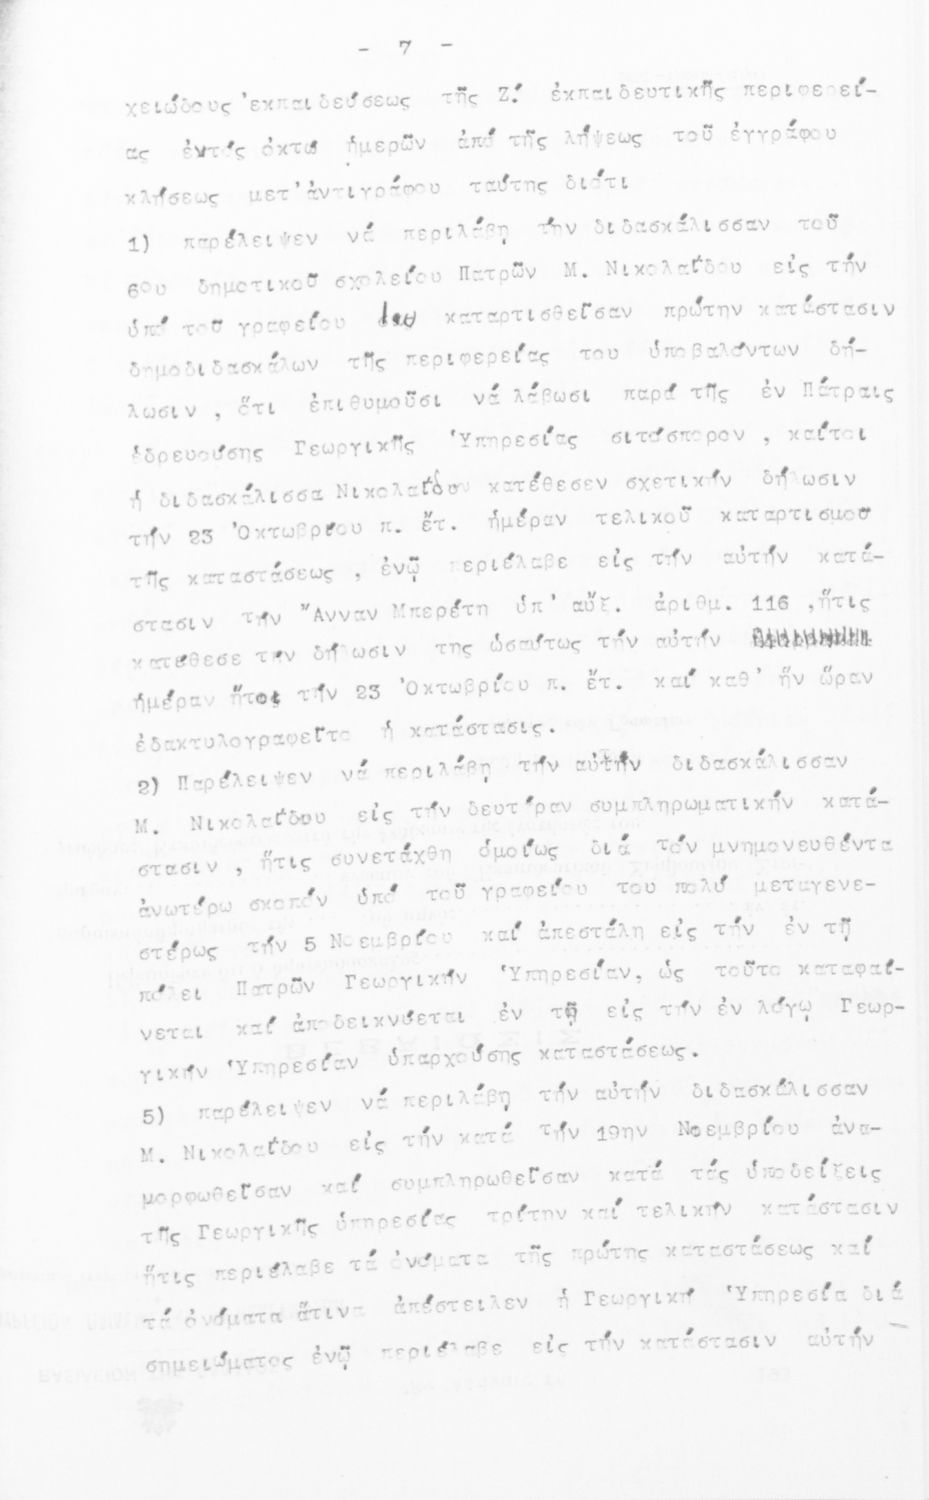 - 7 -
χειώδους ἐκπαιδεύσεως τῆς Ζ΄. ἐκπαιδευτικῆς περιφερεί-
ας ἐντός ὀκτώ ἡμερῶν ἀπό τῆς λήψεως τοῦ ἐγγράφου
κλήσεως μετ' ἀντιγράφου ταύτης διότι
1) παρέλειψεν νά περιλάβῃ τήν διδασκάλισσαν τοῦ
6ου δημοτικοῦ σχολείου Πατρῶν Μ. Νικολαΐδου εἰς τήν
ὑπό τοῦ γραφείου καταρτισθεῖσαν πρώτην κατάστασιν
δημοδιδασκάλων τῆς περιφερείας του ὑποβαλόντων δή-
λωσιν , ὅτι ἐπιθυμοῦσι νά λάβωσι παρά τῆς ἐν Πάτραις
ἑδρευούσης Γεωργικῆς Ὑπηρεσίας σιτόσπορον , καίτοι
ἡ διδασκάλισσα Νικολαΐδου κατέθεσεν σχετικήν δήλωσιν
τήν 23 Ὀκτωβρίου π. ἔτ. ἡμέραν τελικοῦ καταρτισμοῦ
τῆς καταστάσεως , ἐνῷ περιέλαβε εἰς τήν αὐτήν κατά-
στασιν τήν Ἄνναν Μπερέτη ὑπ' αὔξ. ἀριθμ. 116 ,ἥτις
κατέθεσε τήν δήλωσιν της ὡσαύτως τήν αὐτήν
ἡμέραν ἤτοι τήν 23 Ὀκτωβρίου π. ἔτ. καί καθ' ἥν ὥραν
ἐδακτυλογραφεῖτο ἡ κατάστασις.
2) Παρέλειψεν νά περιλάβῃ τήν αὐτήν διδασκάλισσαν
Μ. Νικολαΐδου εἰς τήν δευτέραν συμπληρωματικήν κατά-
στασιν , ἥτις συνετάχθη ὁμοίως διά τόν μνημονευθέντα
ἀνωτέρω σκοπόν ὑπό τοῦ γραφείου του πολύ μεταγενε-
στέρως τήν 5 Νοεμβρίου καί ἀπεστάλη εἰς τήν ἐν τῇ
πόλει Πατρῶν Γεωργικήν Ὑπηρεσίαν, ὡς τοῦτο καταφαί-
νεται καί ἀποδεικνύεται ἐν τῇ εἰς τήν ἐν λόγῳ Γεωρ-
γικήν Ὑπηρεσίαν ὑπαρχούσης καταστάσεως.
5) παρέλειψεν νά περιλάβῃ τήν αὐτήν διδασκάλισσαν
Μ. Νικολαΐδου εἰς τήν κατά τήν 19ην Νοεμβρίου ἀνα-
μορφωθεῖσαν καί συμπληρωθεῖσαν κατά τάς ὑποδείξεις
τῆς Γεωργικῆς ὑπηρεσίας τρίτην καί τελικήν κατάστασιν
ἥτις περιέλαβε τά ὀνόματα τῆς πρώτης καταστάσεως καί
τά ὀνόματα ἅτινα ἀπέστειλεν ἡ Γεωργική Ὑπηρεσία διά
σημειώματος ἐνῷ περιέλαβε εἰς τήν κατάστασιν αὐτήν